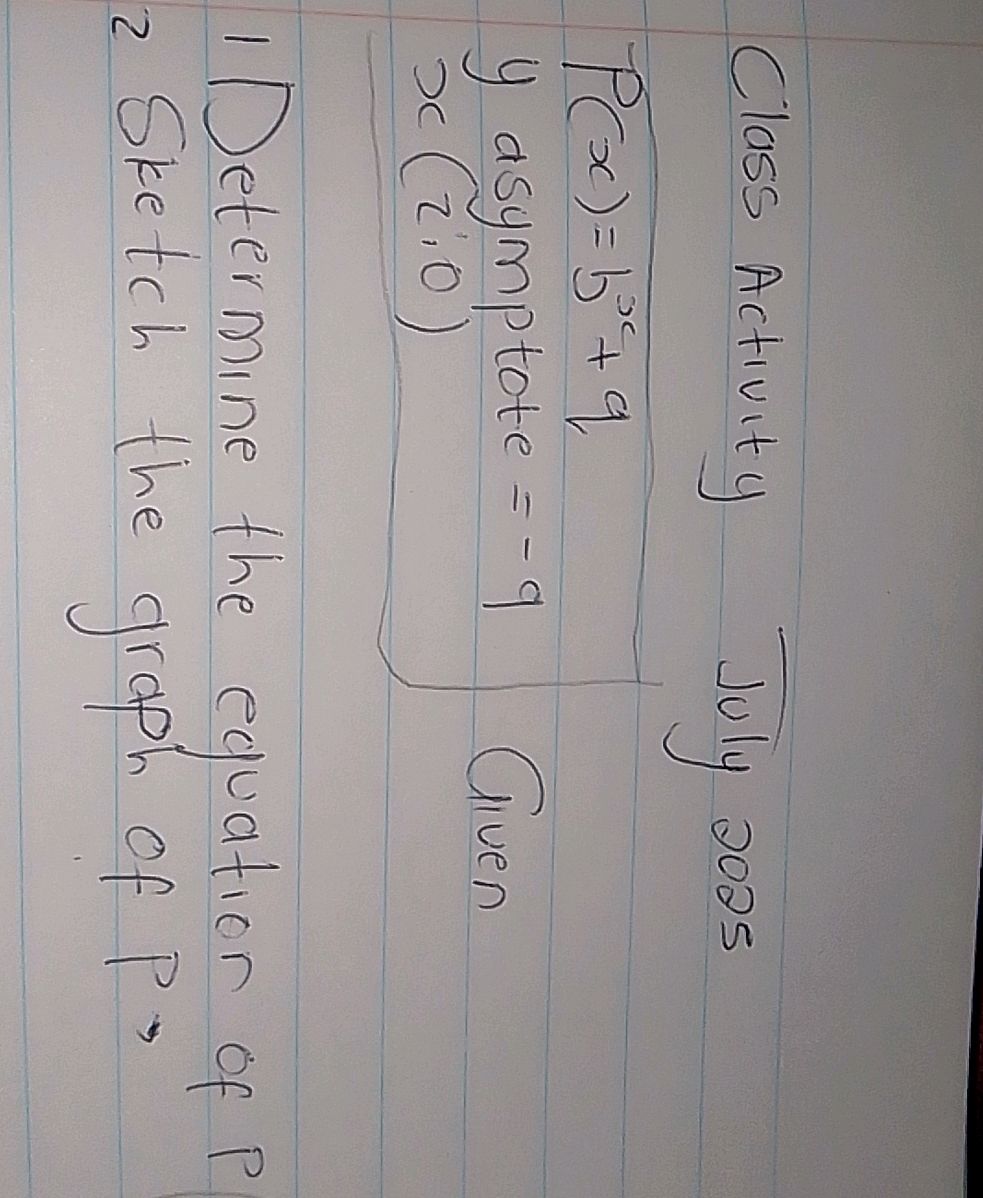 Class Activity July 2025
P(x) = b^x + q
y asymptote = -9
x(2;0)
Given
1 Determine the equation of P
2 Sketch the graph of P